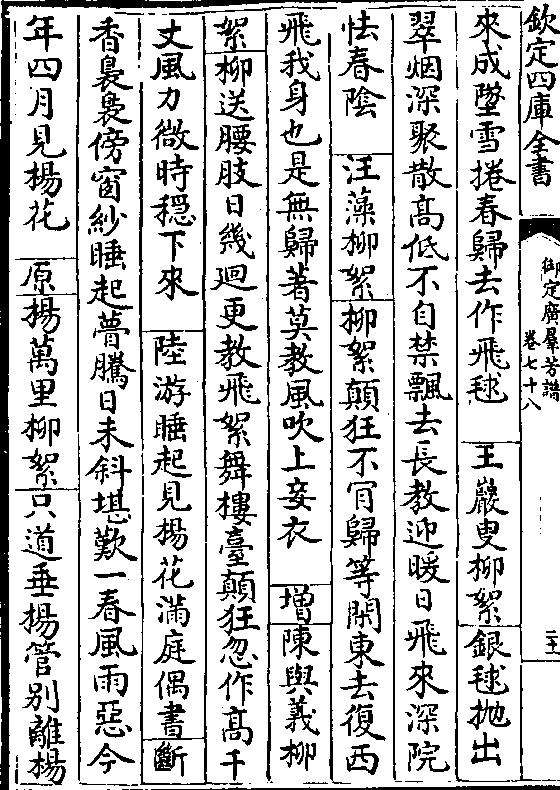 欽定四庫全書
御定廣羣芳譜
卷七十八
二十
來成墜雪捲春歸去作飛毬　王巖叟柳絮銀毬拋出
翠烟深聚散髙低不自禁飄去長教迎暖日飛來深院
怯春陰　汪藻柳絮柳絮顛狂不肎歸等閑東去復西
飛我身也是無歸著莫教風吹上妾衣　增陳與義柳
絮柳送腰肢日幾迴更教飛絮舞樓臺顛狂忽作髙千
丈風力微時穩下來　陸游睡起見楊花滿庭偶書斷
香裊裊傍窗紗睡起瞢騰日未斜堪歎一春風雨惡今
年四月見楊花　原楊萬里柳絮只道垂楊管别離楊